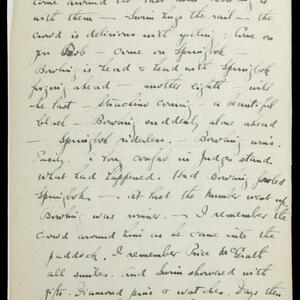 come around the last turn
with them — Swim hugs the rail — the
crowd is delirious with yelling: Come on
you Bob — Come on Springbok
Bowling is Head & Head with Springbok
forging ahead — another eighth will
be last — coming — a beautiful
black — Bowling suddenly alone ahead
— Springbok riderless. — Bowling wins.
Easily. in Judges stand.
What had happened. Had Bowling fouled
Springbok — at last the number went up
Bowling was winner. — I remember the
crowd around him as he came into the
paddock. I remember Price McGrath
all smiles. and Swim showered with
gifts. Diamond pins & watches. Days then